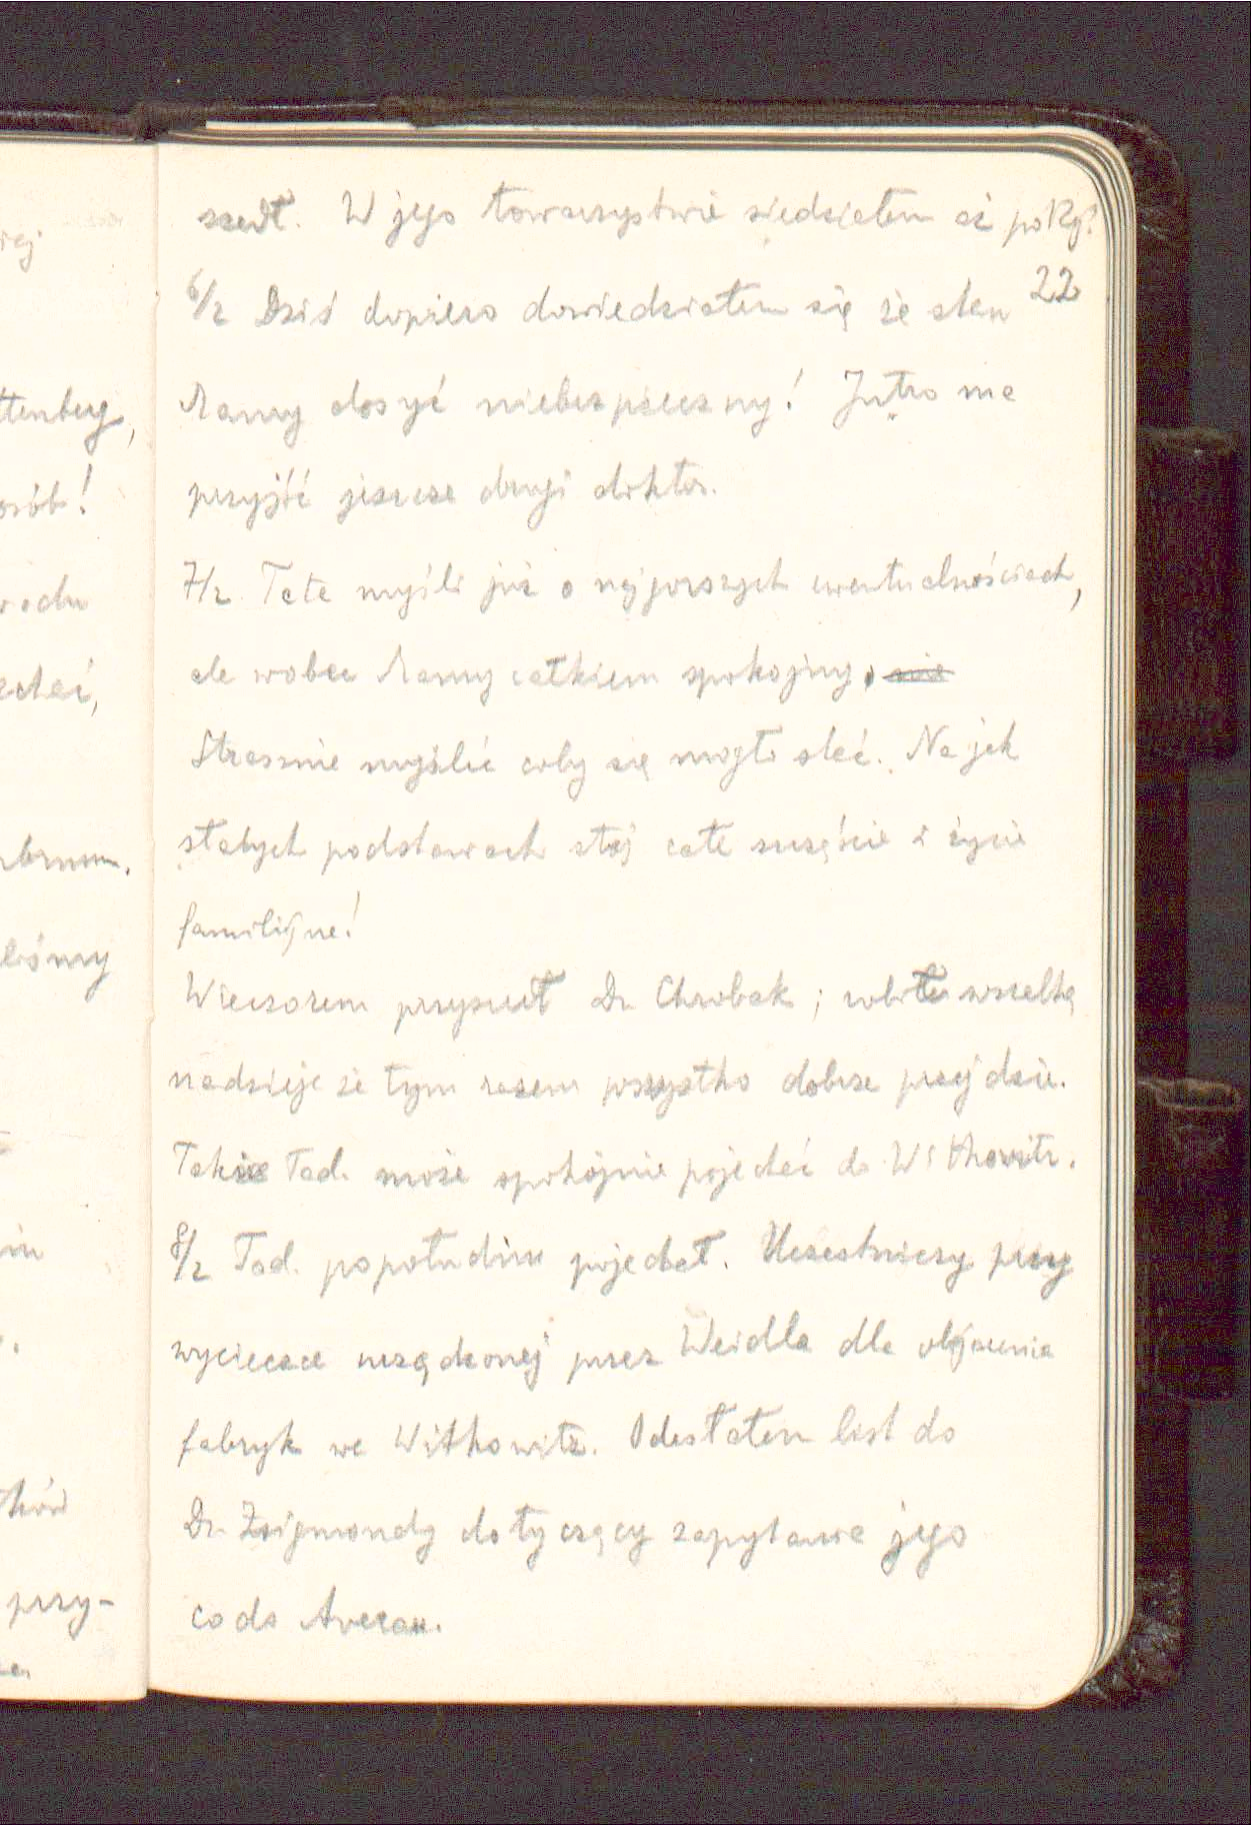 szedł. W jego towarzystwie siedziałem aż po
22
6/2 Dziś dopiero dowiedziałem się że stan
Mamy dosyć niebezpieczny! Jutro ma
przyjść jeszcze drugi doktor.
7/2 Tata myśli już o najgorszych ewentualnościach,
ale wobec Mamy całkiem spokojny, nie
Strasznie myślić coby się mogło stać. Na jak
słabych podstawach stoj całe szczęście i życie
familijne!
Wieczorem przyszedł Dr. Chrobak; robił wszelką
nadzieje że tym razem wszystko dobrze przejdzie.
Także Tad. może spokojnie pojechać do Witkowitz.
8/2 Tad. popołudniu pojechał. Uczestniczy przy
wycieczce urządzonej przez Weidla dla obejrzenia
fabryk we Witkowitz. Odesłałem list do
Dr. Zsigmondy dotyczący zapytania jego
co do Averau.
ttenberg,
osób!
echać,
liśmy
przy-